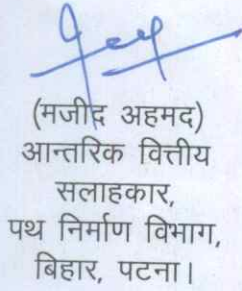 (मजीद अहमद)
आन्तरिक वित्तीय
सलाहकार,
पथ निर्माण विभाग,
बिहार, पटना।